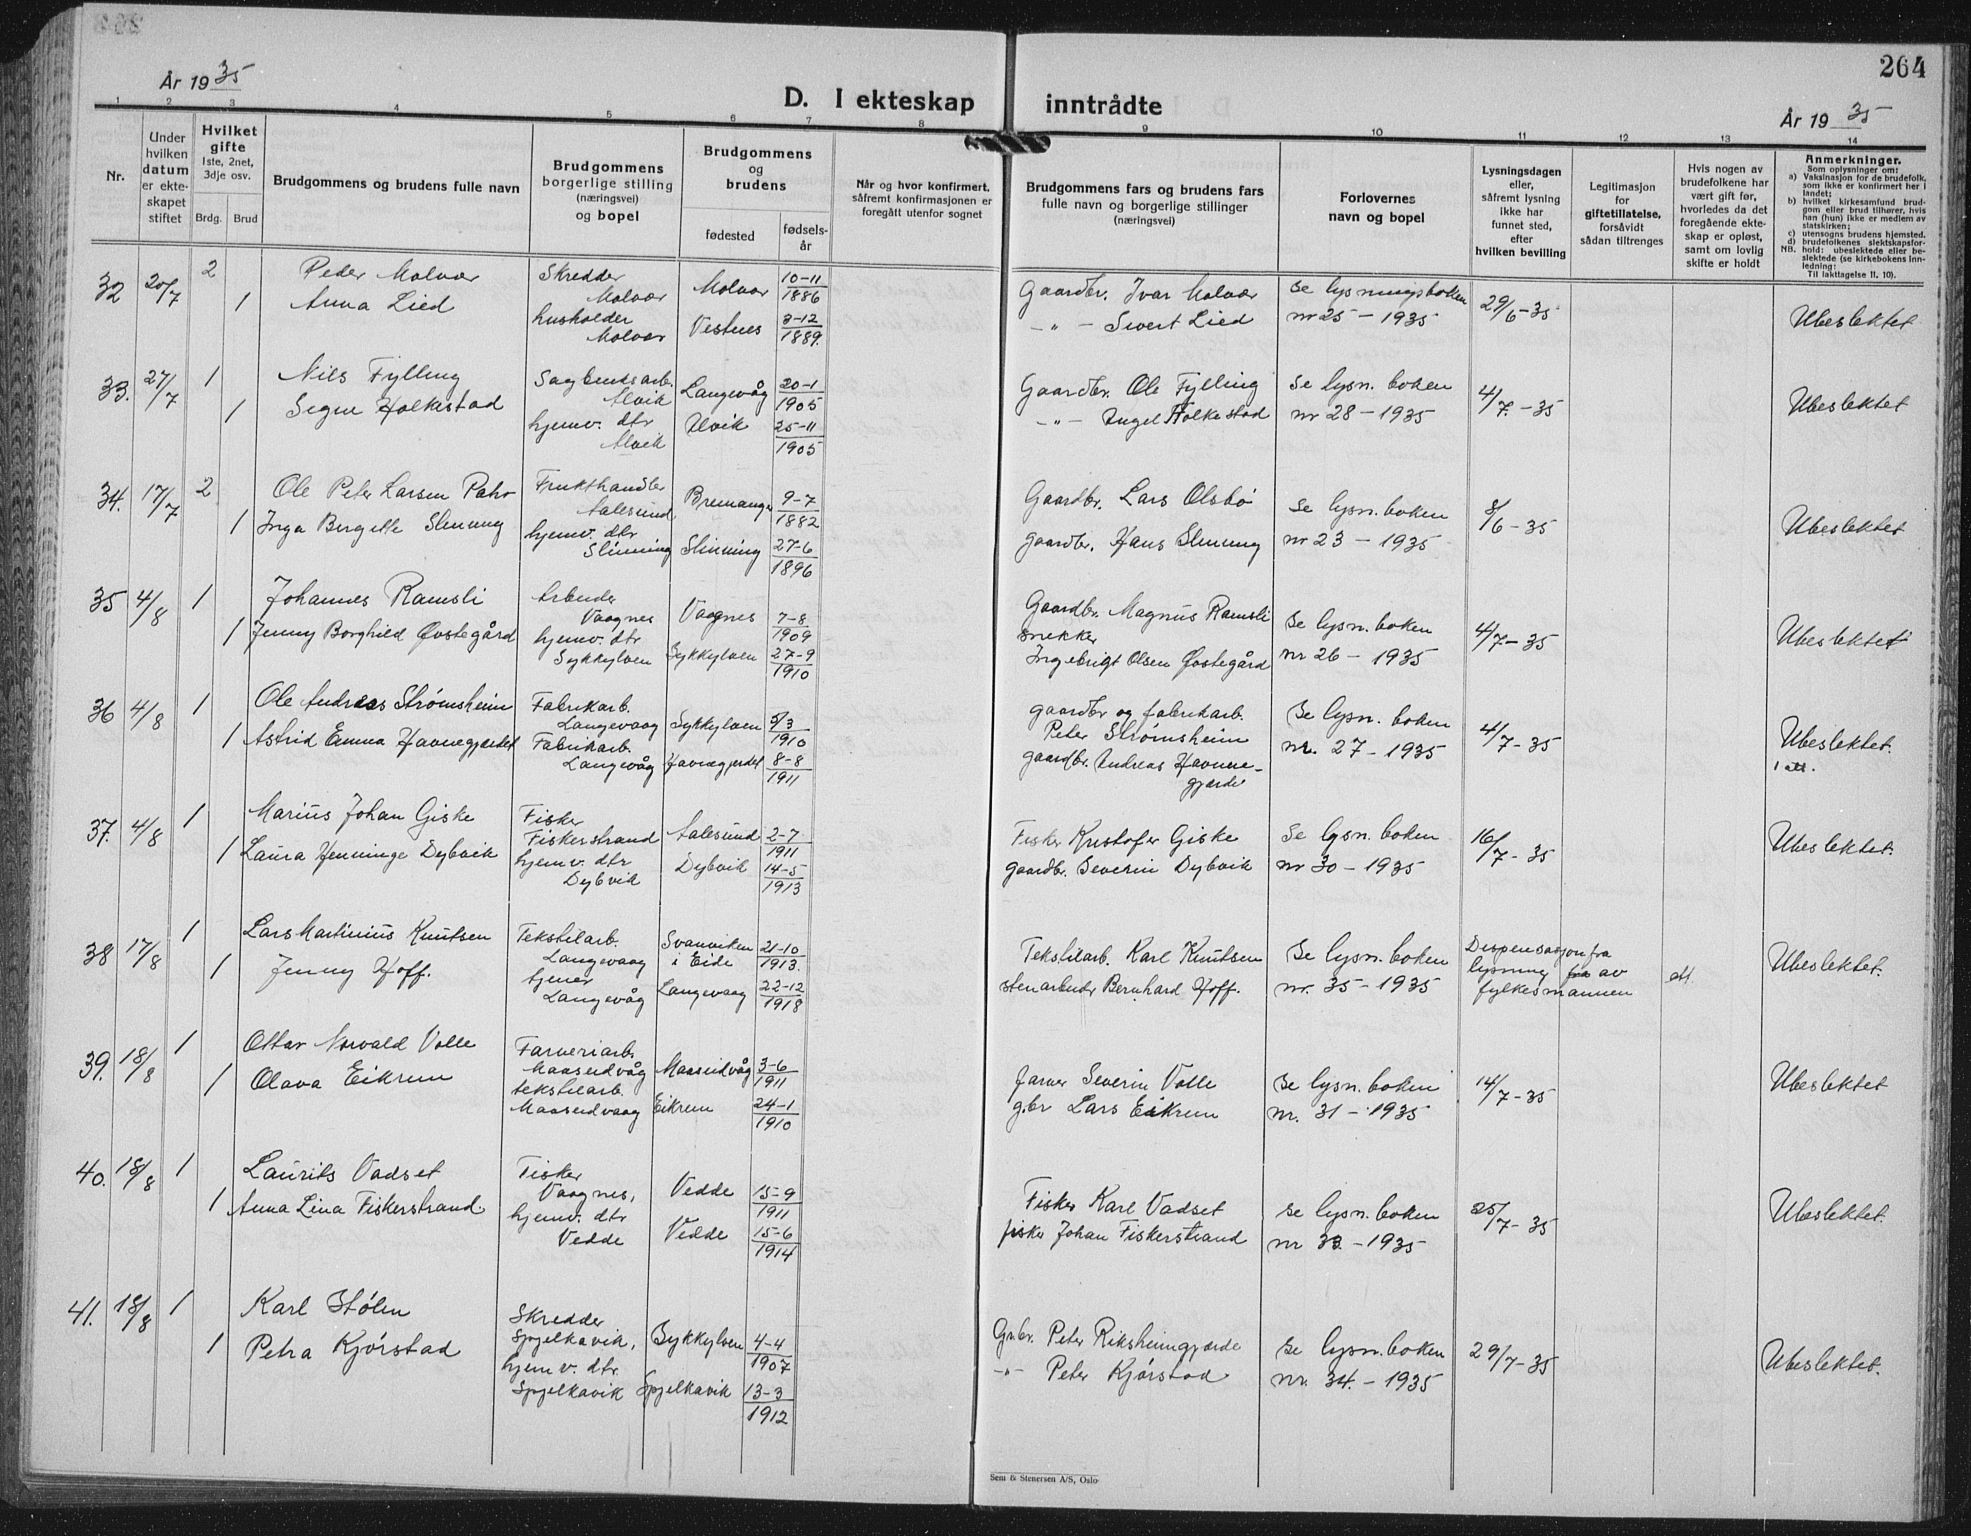 264
År 1935
D. I ekteskap inntrådte
År 1935
1 2 3 4 5 6 7 8 9 10 11 12 13 14
Nr.
Under hvilken datum er ekteskapet stiftet
Hvilket gifte 1ste, 2net, 3dje osv.
Brdg. Brud
Brudgommens og brudens fulle navn
Brudgommens borgerlige stilling (næringsvei) og bopel
Brudgommens og brudens
fødested fødsels-år
Når og hvor konfirmert. såfremt konfirmasjonen er foregått utenfor sognet
Brudgommens fars og brudens fars fulle navn og borgerlige stillinger (næringsvei)
Forlovernes navn og bopel
Lysningsdagen eller, såfremt lysning ikke har funnet sted, efter hvilken bevilling
Legitimasjon for giftetillatelse, forsåvidt sådan tiltrenges
Hvis nogen av brudefolkene har vært gift før, hvorledes da det foregående ekteskap er opløst, samt om lovlig skifte er holdt
Anmerkninger.
Som oplysninger om:
a) Vaksinasjon for de brudefolk, som ikke er konfirmert her i landet;
b) hvilket kirkesamfund brudgom eller brud tilhører, hvis han (hun) ikke er medlem av statskirken;
c) utensogns brudens hjemsted.
d) brudefolkenes slektskapsforhold: ubeslektede eller beslektede (se kirkebokens innledning:
NB. Til iakttagelse II. 10).
32 20/7 2 Peder Molvær Skredder Molvær Molvær 10-11 1886 Gaardbr. Ivar Molvær Se lysningsboken 29/6-35 Ubeslektet
1 Anna Lied husholder Molvær Vestnes 3-12 1889. -"- Sivert Lied nr 25 - 1935
33. 27/7 1 Nils Fylling Sagbruksarb. Alvik Langevåg 20-1 1905 Gaardbr. Ole Fylling Se lysn. boken 4/7.-35 Ubeslektet
1 Signe Holkestad hjemv. dtr Alvik Ulvik 25-11 1905 -"- Ingel Folkestad nr 28 - 1935
34. 17/7 2 Ole Peter Larsen Frukthandler Aalesund Bremanger 9-7 1882 Gaardbr. Lars Olsbö Se lysn. boken 8/6-35 Ubeslektet
1 Inga Bergitte Slinning hjemv. dtr Slinning Slinning 27-6 1896 gaardbr. Hans Slinning nr 23 - 1935
35 4/8 1 Johannes Ramsli Arbeider Vaagnes Vaagnes 7-8 1909 Gaardbr. Magnus Ramsli Se lysn. boken 4/7-35 Ubeslektet
1 Jenny Borghild Øvstegård hjemv. dtr Sykkylven Sykkylven 27-9 1910 snekker Ingebrigt Olsen Øvstegård nr 26 - 1935
36 4/8 1 Ole Andreas Strømsheim Fabrikarb. Langevaag Sykkylven 5/3 1910 gaardbr og fabrikarb. Peter Strømsheim Se lysn. boken 4/7-35 Ubeslektet.
1 Astrid Emma Havnegjerdet Fabrikarb. Langevåg Havnegjerdet 8-8 1911 gaardbr. Andreas Havnegjerde nr. 27 - 1935 1 att.
37. 4/8 1 Marius Johan Giske Fisker Fiskerstrand Aalesund 2-7 1911 Fisker Kristofer Giske Se lysn. boken 16/7-35 Ubeslektet.
1 Laura Henninge Dybvik hjemv. dtr Dybvik Dybvik 14-5 1913 gaardbr. Severin Dybvik nr 30 - 1935
38 17/8 1 Lars Martinius Knutsen Tekstilarb. Langevaag Svanviken i Eide 21-10 1913. Tekstilarb. Karl Knutsen Se lysn. boken Dispensasjon fra lysning fra av fylkesmannen att. Ubeslektet.
1 Jenny Hoff. tjener Langevåg Langevaag 22-12 1918 stenarbeider Bernhard Hoff. nr. 35 - 1935
39. 18/8 1 Ottar Norvald Volle Farveriarb. Maaseidvåg Maaseidvåg 3-6 1911 farver Severin Volle Se lysn. boken 14/7-35 Ubeslektet
1 Olava Eikrem tekstilarb. Maaseidvaag Eikrem 24-1 1910 g.br Lars Eikrem nr. 31 - 1935
40. 18/8 1 Laurits Vadset Fisker Vaagnes, Vedde 15-9 1911 Fisker Karl Vadset Se lysn. boken 25/7-35 Ubeslektet.
1 Anna Lina Fiskerstrand. hjemv. dtr Vedde Vedde 15-6 1914 fisker Johan Fiskerstrand nr 33 - 1935
41. 18/8 1 Karl Stølen Skredder Spjelkavik, Sykkylven 4-4 1907 Gr.br. Peter Riksheimgjærde Se lysn. boken 29/7-35 Ubeslektet.
1 Petra Kjörstad hjemv. dtr. Spjelkavik Spjelkavik 13-3 1912 -"- Peter Kjørstad nr. 34. - 1935
Sem & Stenersen A/S, Oslo